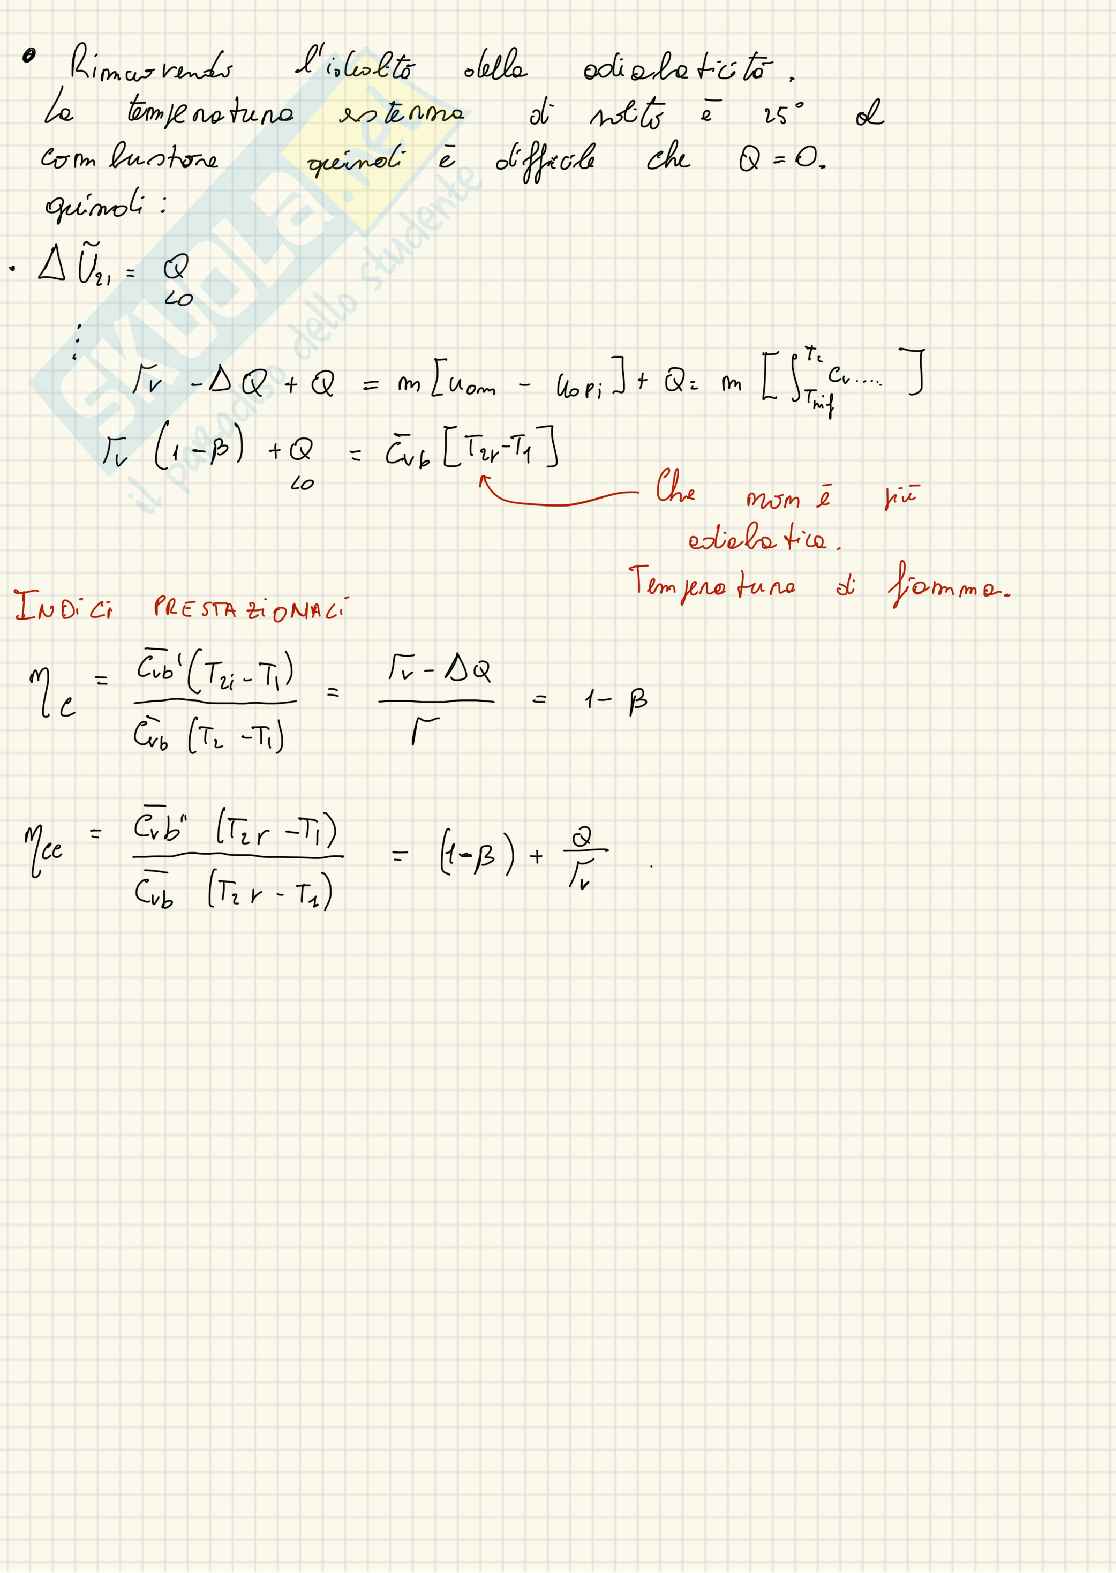 • Rimuovendo l'idealità della adiabaticità.
La temperatura esterna di solito è 25° al
combustore quindi è difficile che Q = 0.
quindi:
· ΔŨ₂₁ = Q
<0
⋮
Γv - ΔQ + Q = m [u₀m - u₀pi] + Q = m [∫_Trif^T₂ Cv.....]
Γv (1-β) + Q = C̄vb [T₂r - T₁]
<0
Che non è più
adiabatica.
Temperatura di fiamma.
INDICI PRESTAZIONALI
ηc = C̄vb' (T₂i - T₁) / C̄vb (T₂ - T₁) = Γv - ΔQ / Γ = 1 - β
ηcc = C̄vb" (T₂r - T₁) / C̄vb (T₂r - T₁) = (1-β) + Q / Γv
SKUOLA.net
il paradiso dello studente